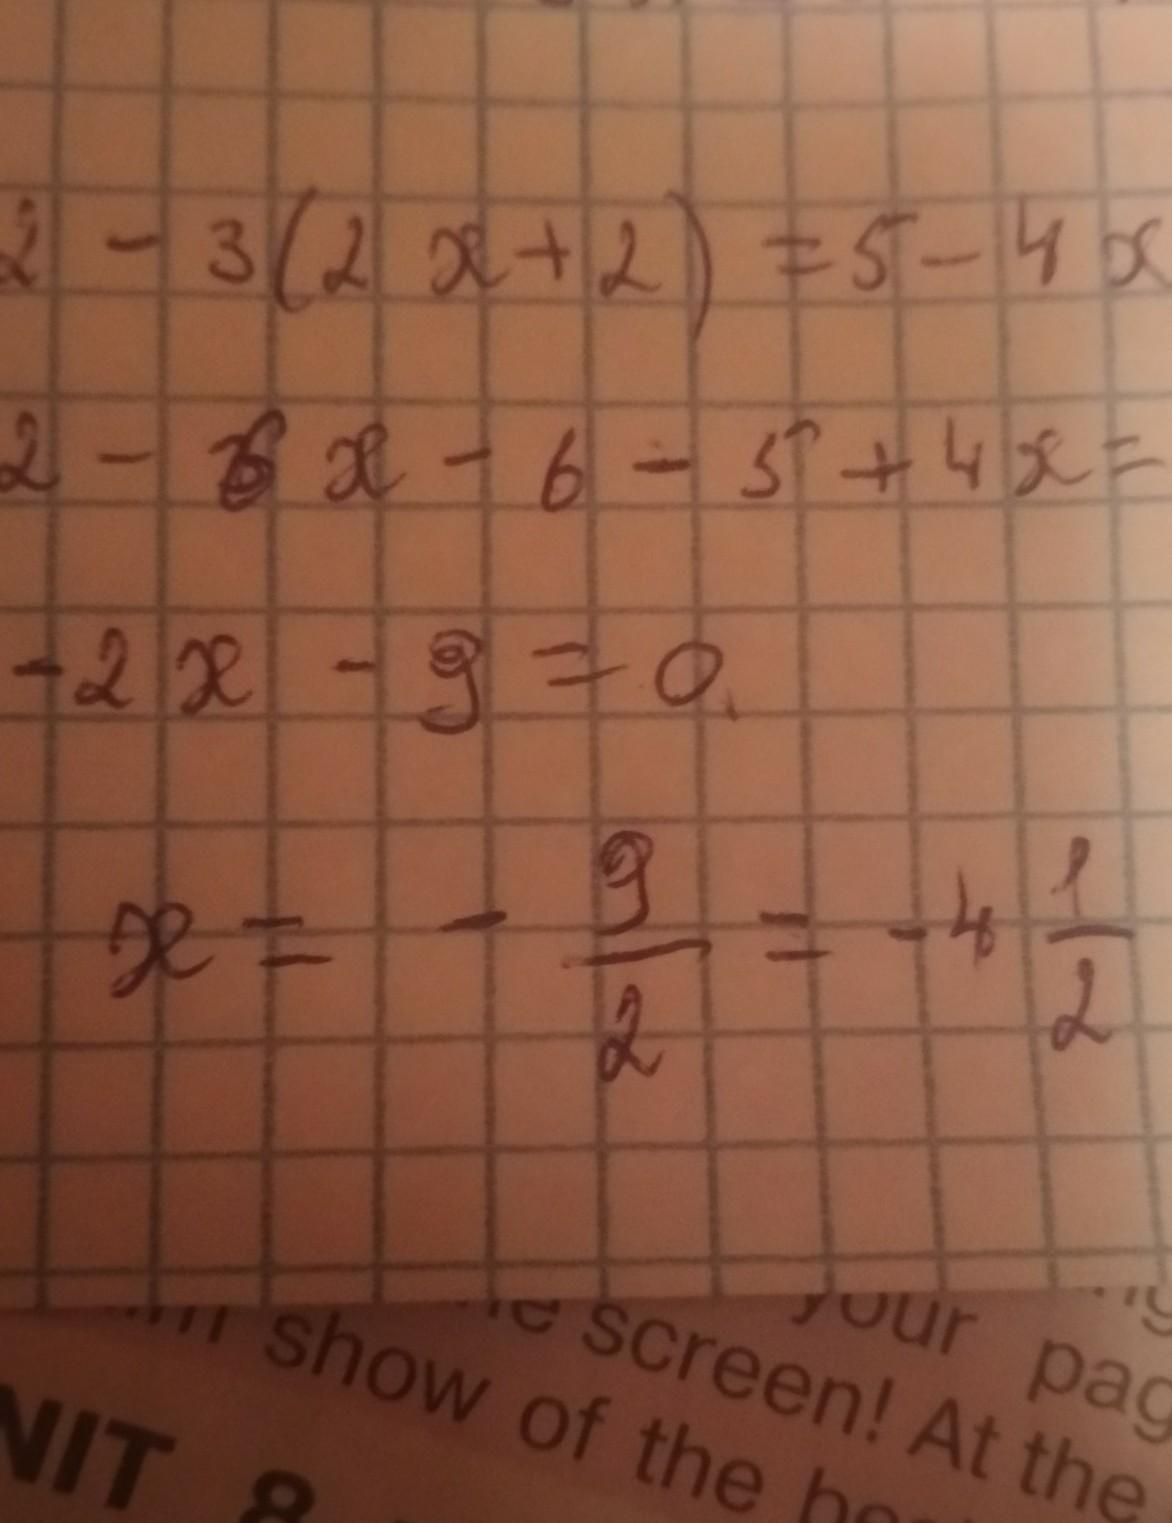 2 - 3(2x+2) = 5 - 4x
2 - 6x - 6 - 5 + 4x =
-2x - 9 = 0
x = - 9/2 = -4 1/2
your
screen! At the
show of the
NIT 8